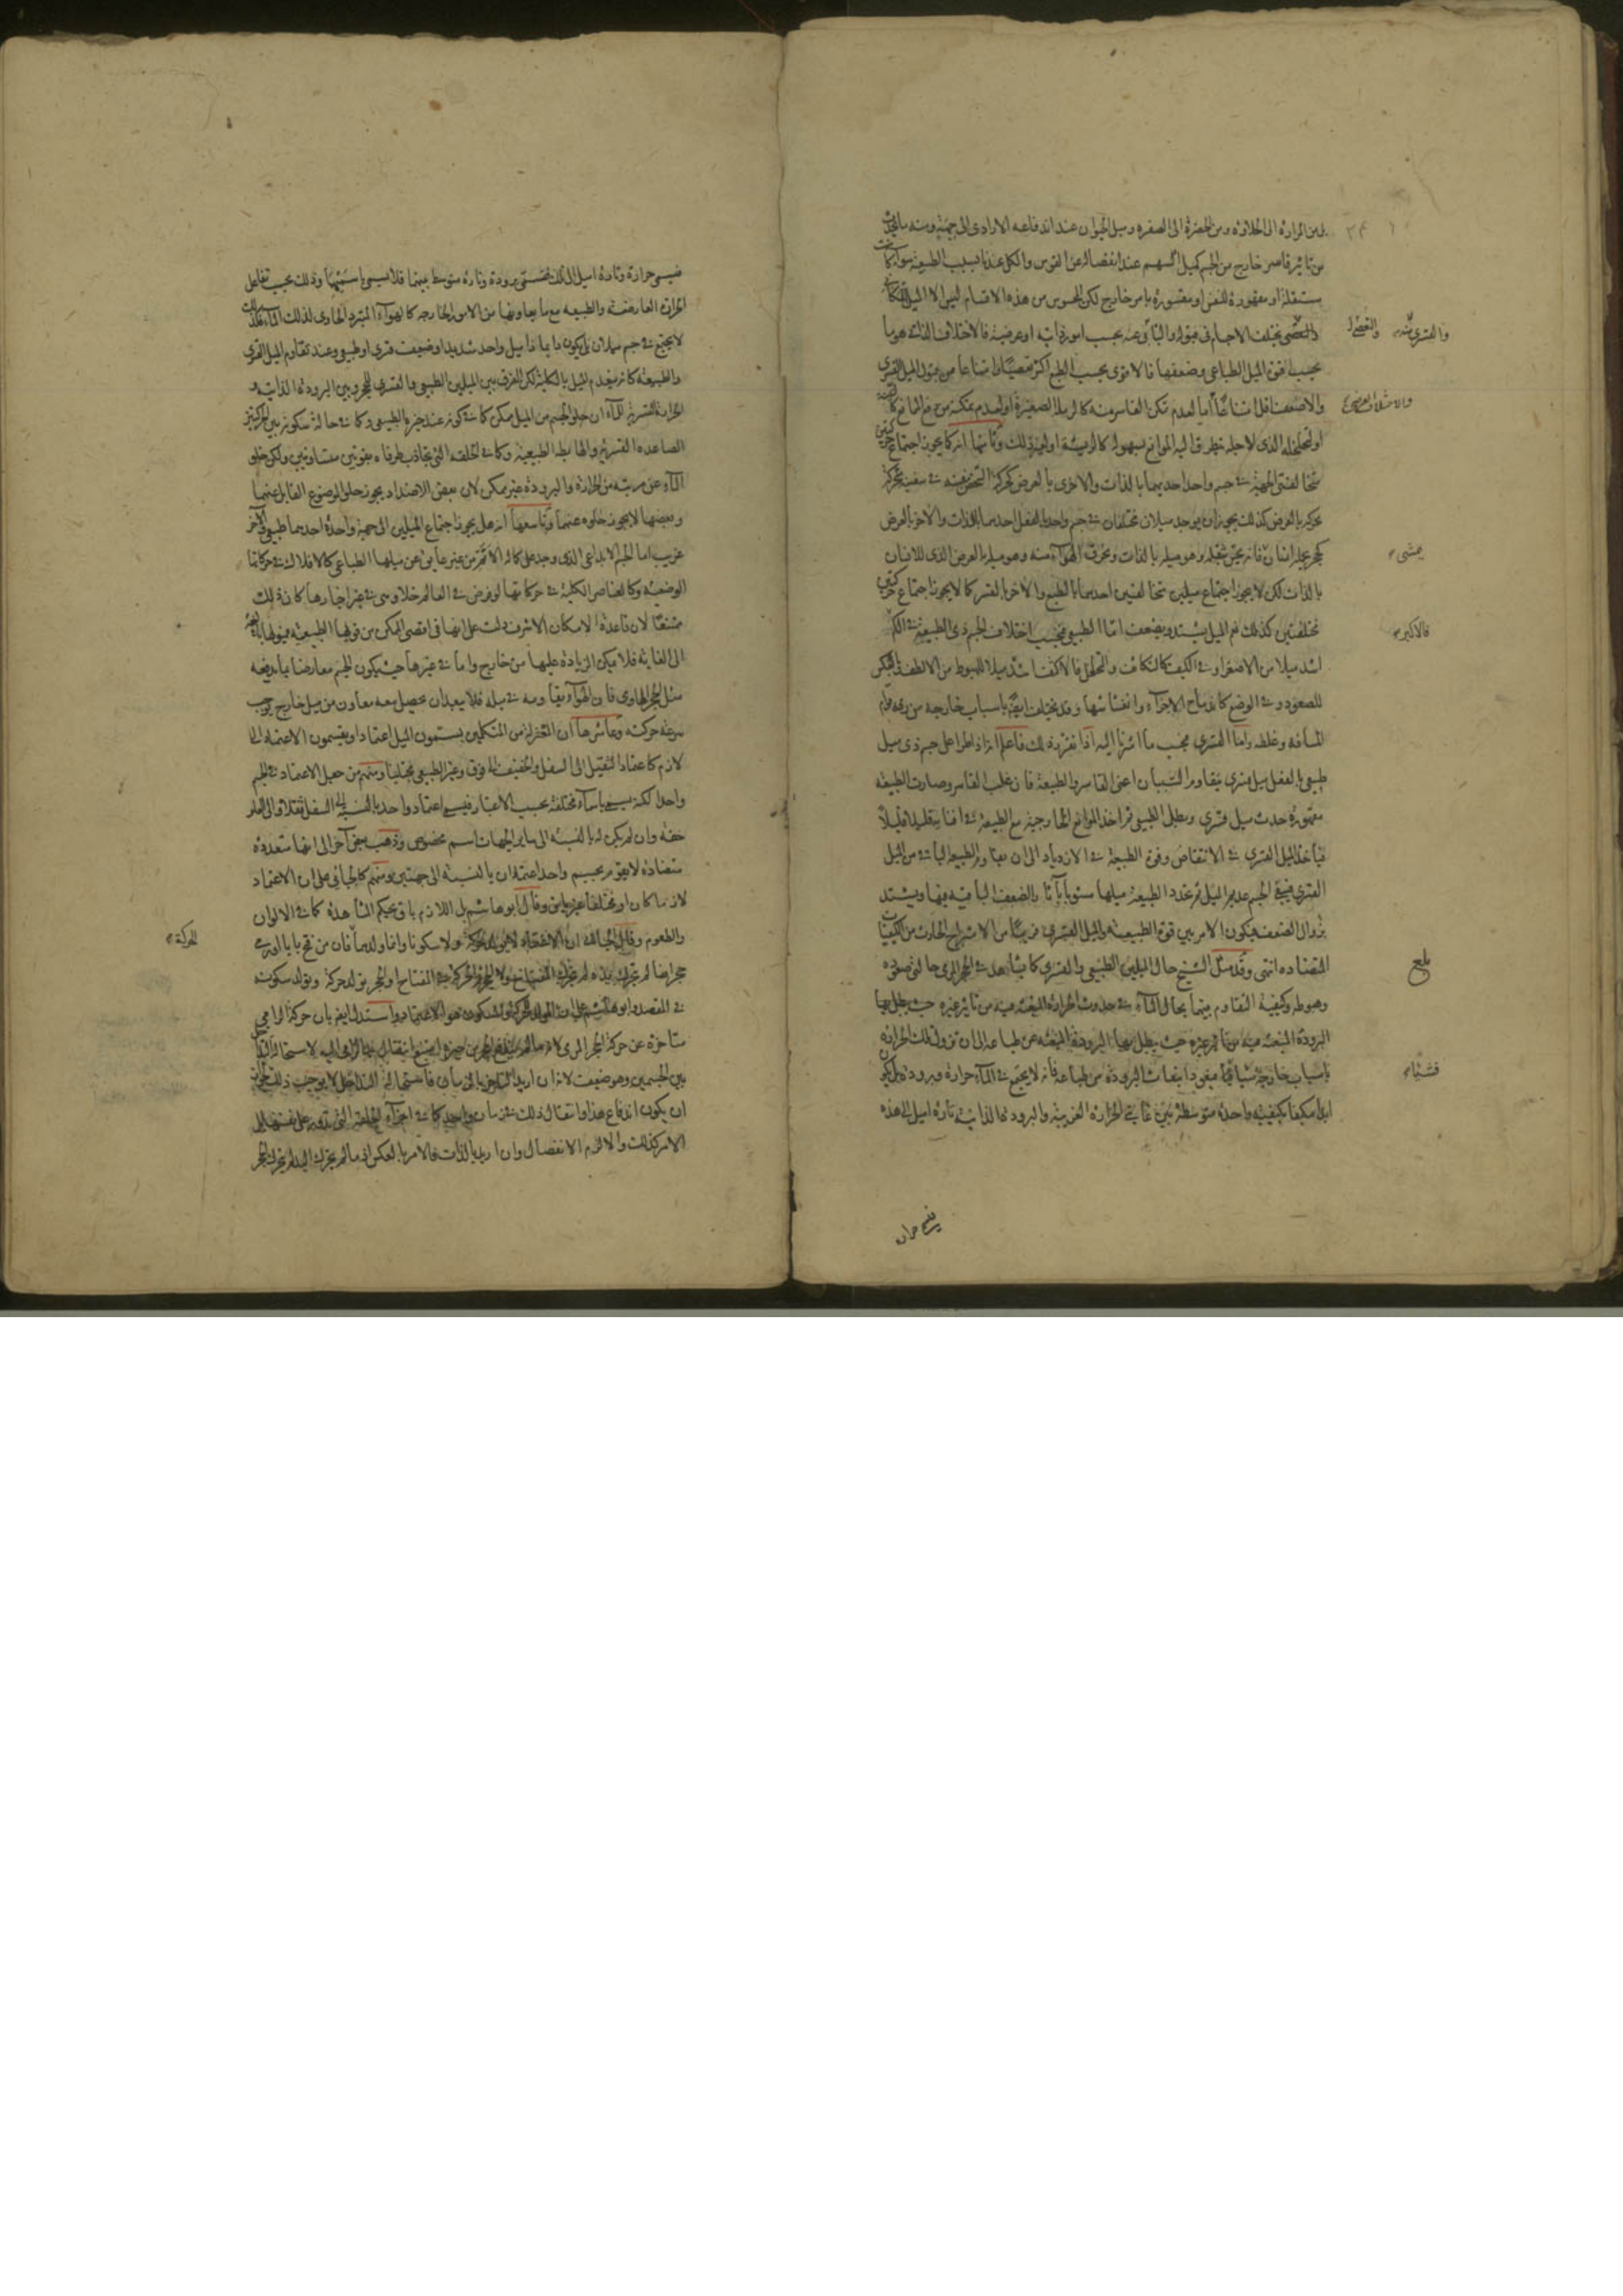 بل من المرارة الى الحلاوة ومن الخضرة الى الصفرة وميل الحيوان عند اندفاعه الارادى الى جهة ومنه ما يحدث
من تاثير قاسر خارج من الجسم كميل السهم عند انفصاله عن القوس والكل عندنا بسبب الطبيعة سواء كانت
مستقلة او مقهورة للنفس او مقسورة بامر خارج لكن المحسوس من هذه الاقسام ليس الا الميل
تختلف الاجسام فى قبوله والتأبى عنه بحسب امور ذاتية او عرضية فالاختلاف الذاتى هو ما
بحسب قوة الميل الطباعى وضعفها فالاقوى بحسب الطبع اكثر تعصيا وامتناعا من قبول الميل القسرى
والاضعف اقل امتناعا اما لعدم تمكن القاسر منه كالرملة الصغيرة او لعدم تمكنه من
او لتخلخله الذى لاجله يتطرق اليه الموانع بسهولة كالريشة او لغير ذلك وثامنها انه كما يجوز اجتماع حركتين
مختلفتى الجهة فى جسم واحد احديهما بالذات والاخرى بالعرض كحركة الشخص بنفسه فى سفينة متحركة
بحركة بالعرض كذلك يجوز ان يوجد ميلان مختلفان فى جسم واحد بالفعل احدهما بالذات والاخر بالعرض
كحجر يحمله انسان فانه يحس بثقله وهو ميله بالذات وبخرق الهواء منه وهو ميله بالعرض الذى للانسان
بالذات لكن لا يجوز اجتماع ميلين مختلفين احدهما بالطبع والاخر بالقسر كما لا يجوز اجتماع حركتين
مختلفتين كذلك ثم الميل يشتد ويضعف اما الطبيعى فبحسب اختلاف الجسم ذى الطبيعة فى الكم
اشد ميلا من الاصغر او فى الكيف كالتكاثف والتخلخل فالاكثف اشد ميلا للهبوط من الالطف
للصعود وفى الوضع كاندماج الاجزاء وانفشاشها وقد يختلف ايضا باسباب خارجة من رقة قوام
المسافة وغلظه واما القسرى فبحسب ما اشرنا اليه اذا تقرر ذلك فاعلم انه اذا طرأ على جسم ذى ميل
طبيعى بالفعل ميل قسرى تقاوم السببان اعنى القاسر والطبيعة فان غلب القاسر وصارت الطبيعة
مقهورة حدث ميل قسرى وبطل الطبيعى ثم اخذ الموانع الخارجية مع الطبيعة فى افنائه قليلا قليلا
فياخذ الميل القسرى فى الانتقاص وقوة الطبيعة فى الازدياد الى ان تقاوم الطبيعة الباقى من الميل
القسرى فيبقى الجسم عديم الميل ثم تجدد الطبيعة ميلها مشوبا بآثار الضعف الباقية فيها ويشتد
بزوال الضعف فيكون الامر بين قوة الطبيعة والميل القسرى قريبا من الامتزاج الحادث من الكيفيات
المتضادة انتهى وقد مثل الشيخ حال الميلين الطبيعى والقسرى كما يشاهد فى الحجر المرمى حالتى صعوده
وهبوطه وكيفية التقاوم بينهما بحال الماء فى حدوث الحرارة المنبعثة فيه من تاثير غيره حيث يبطل بها
البرودة المنبعثة
باسباب خارجة شيئا فشيئا فيعود انبعاث البرودة من طباعه فانه لا يجتمع فى الماء حرارة وبرودة بل يكون
ابدا مكيفا بكيفية واحدة متوسطة بين غايتى الحرارة الغريبة والبرودة الذاتية تارة اميل الى هذه
يمشى
فالاكبر
بلغ
فشيئا
فيسمى حرارة وتارة اميل الى تلك فتسمى برودة وتارة متوسط بينهما فلا يسمى باسميهما وذلك بحسب تفاعل
الحرارة العارضة والطبيعة مع ما يعاونها من الامور الخارجة كالهواء المبرد الحاوى لذلك الماء فكذلك
لا يجتمع فى جسم ميلان بل يكون دايما ذا ميل واحد شديد او ضعيف قسرى او طبيعى وعند تقاوم الميل القسرى
والطبيعة كانه ينعدم الميل بالكلية لكن الفرق بين الميلين الطبيعى والقسرى للحجر وبين البرودة الذاتية و
الحرارة القسرية للماء ان خلو الجسم من الميل ممكن كما فى كونه عند حيزه الطبيعى وكما فى حالة سكونه بين الحركتين
الصاعدة القسرية والهابطة الطبيعية وكما فى الحلقة التى يتجاذب طرفاه بقوتين متساويتين ولكن خلو
الماء عن مرتبة من الحرارة والبرودة غير ممكن لان بعض الاضداد يجوز خلو الموضوع القابل عنهما
وبعضها لا يجوز خلوه عنهما وتاسعها انه هل يجوز اجتماع الميلين الى جهة واحدة احدهما طبيعى والاخر
غريب اما الجسم الابداعى الذى وجد على كماله الاتم من غير عايق عن ميلها الطباعى كالافلاك فى حركاتها
الوضعية وكالعناصر الكلية فى حركاتها لو فرض فى العالم خلاء وهى فى غير احيازها كان ذلك
ممتنعا لان قاعدة الامكان الاشرف دلت على انها فى اقصى الممكن من قوتها الطبيعية
الى الغاية فلا يمكن الزيادة عليها من خارج واما فى غيرها حيث يكون الجسم معارضا بما يدفعه
مثل الحجر الهاوى فان الهواء يقاومه فى ميله فلا يبعد ان يحصل معه معاون من ميل خارج يوجب
سرعة حركته وعاشرها ان المعتزلة من المتكلمين يسمون الميل اعتمادا ويقسمون الاعتماد الى
لازم كاعتماد الثقيل الى السفل والخفيف الى فوق وغير الطبيعى مجتلبا ومنهم من جعل الاعتماد فى الجسم
واحدا لكنه يسمى باسماء مختلفة بحسب الاعتبار فيسمى اعتماد واحد بالنسبة الى السفل ثقلا والى العلو
خفة وان لم يكن له بالنسبة الى ساير الجهات اسم مخصوص وذهب بعض آخر الى انها متعددة
متضادة لا يقوم بجسم واحد اعتمادان بالنسبة الى جهتين ومنهم كالجبائى على ان الاعتماد
لازما كان او مختلفا غير باق وقال ابو هاشم بل اللازم باق بحكم المشاهدة كما فى الالوان
والطعوم وقال الجبائى ان الاعتماد لا يولد حركة ولا سكونا وانما ولدهما فان من فتح بابا او رمى
حجرا فما لم تتحرك يده لم يتحرك المفتاح ولا الحجر فالحركة فى المفتاح او الحجر يولد حركة ويولد سكونه
فى المقصد وابو هاشم على ان المولد للحركة والسكون هو الاعتماد واستدل ايضا بان حركة الرامى
متاخرة عن حركة الحجر المرمى لانه ما لم يندفع الحجر من حيزه امتنع انتقال يد الرامى اليه لاستحالة التداخل
بين الجسمين وهو ضعيف لانه ان اريد التاخر بالزمان فاستحالة التداخل لا يوجب ذلك لجواز
ان يكون اندفاع هذا وانتقال ذلك فى زمان واحد كما فى اجزاء الحلقة التى تدور على نفسها بل
الامر كذلك والا لزم الانفصال وان اريد بالذات فالامر بالعكس اذ ما لم يتحرك اليد لم يتحرك الحجر
الحركة